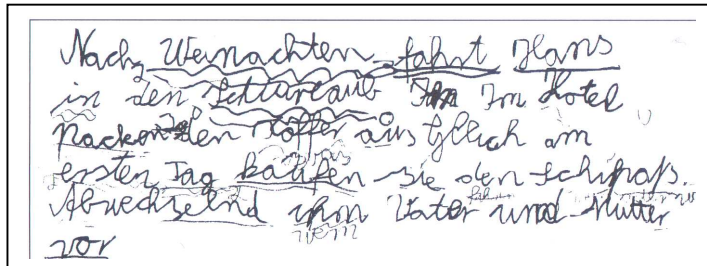 Nach Weinachten fahrt Hans
in den Schiurlaub Im Im Hotel
Packen den Koffer aus Gleich am
ersten Tag kaufen sie den Schipaß.
Abwechselnd ihm Vater und Mutter
vor